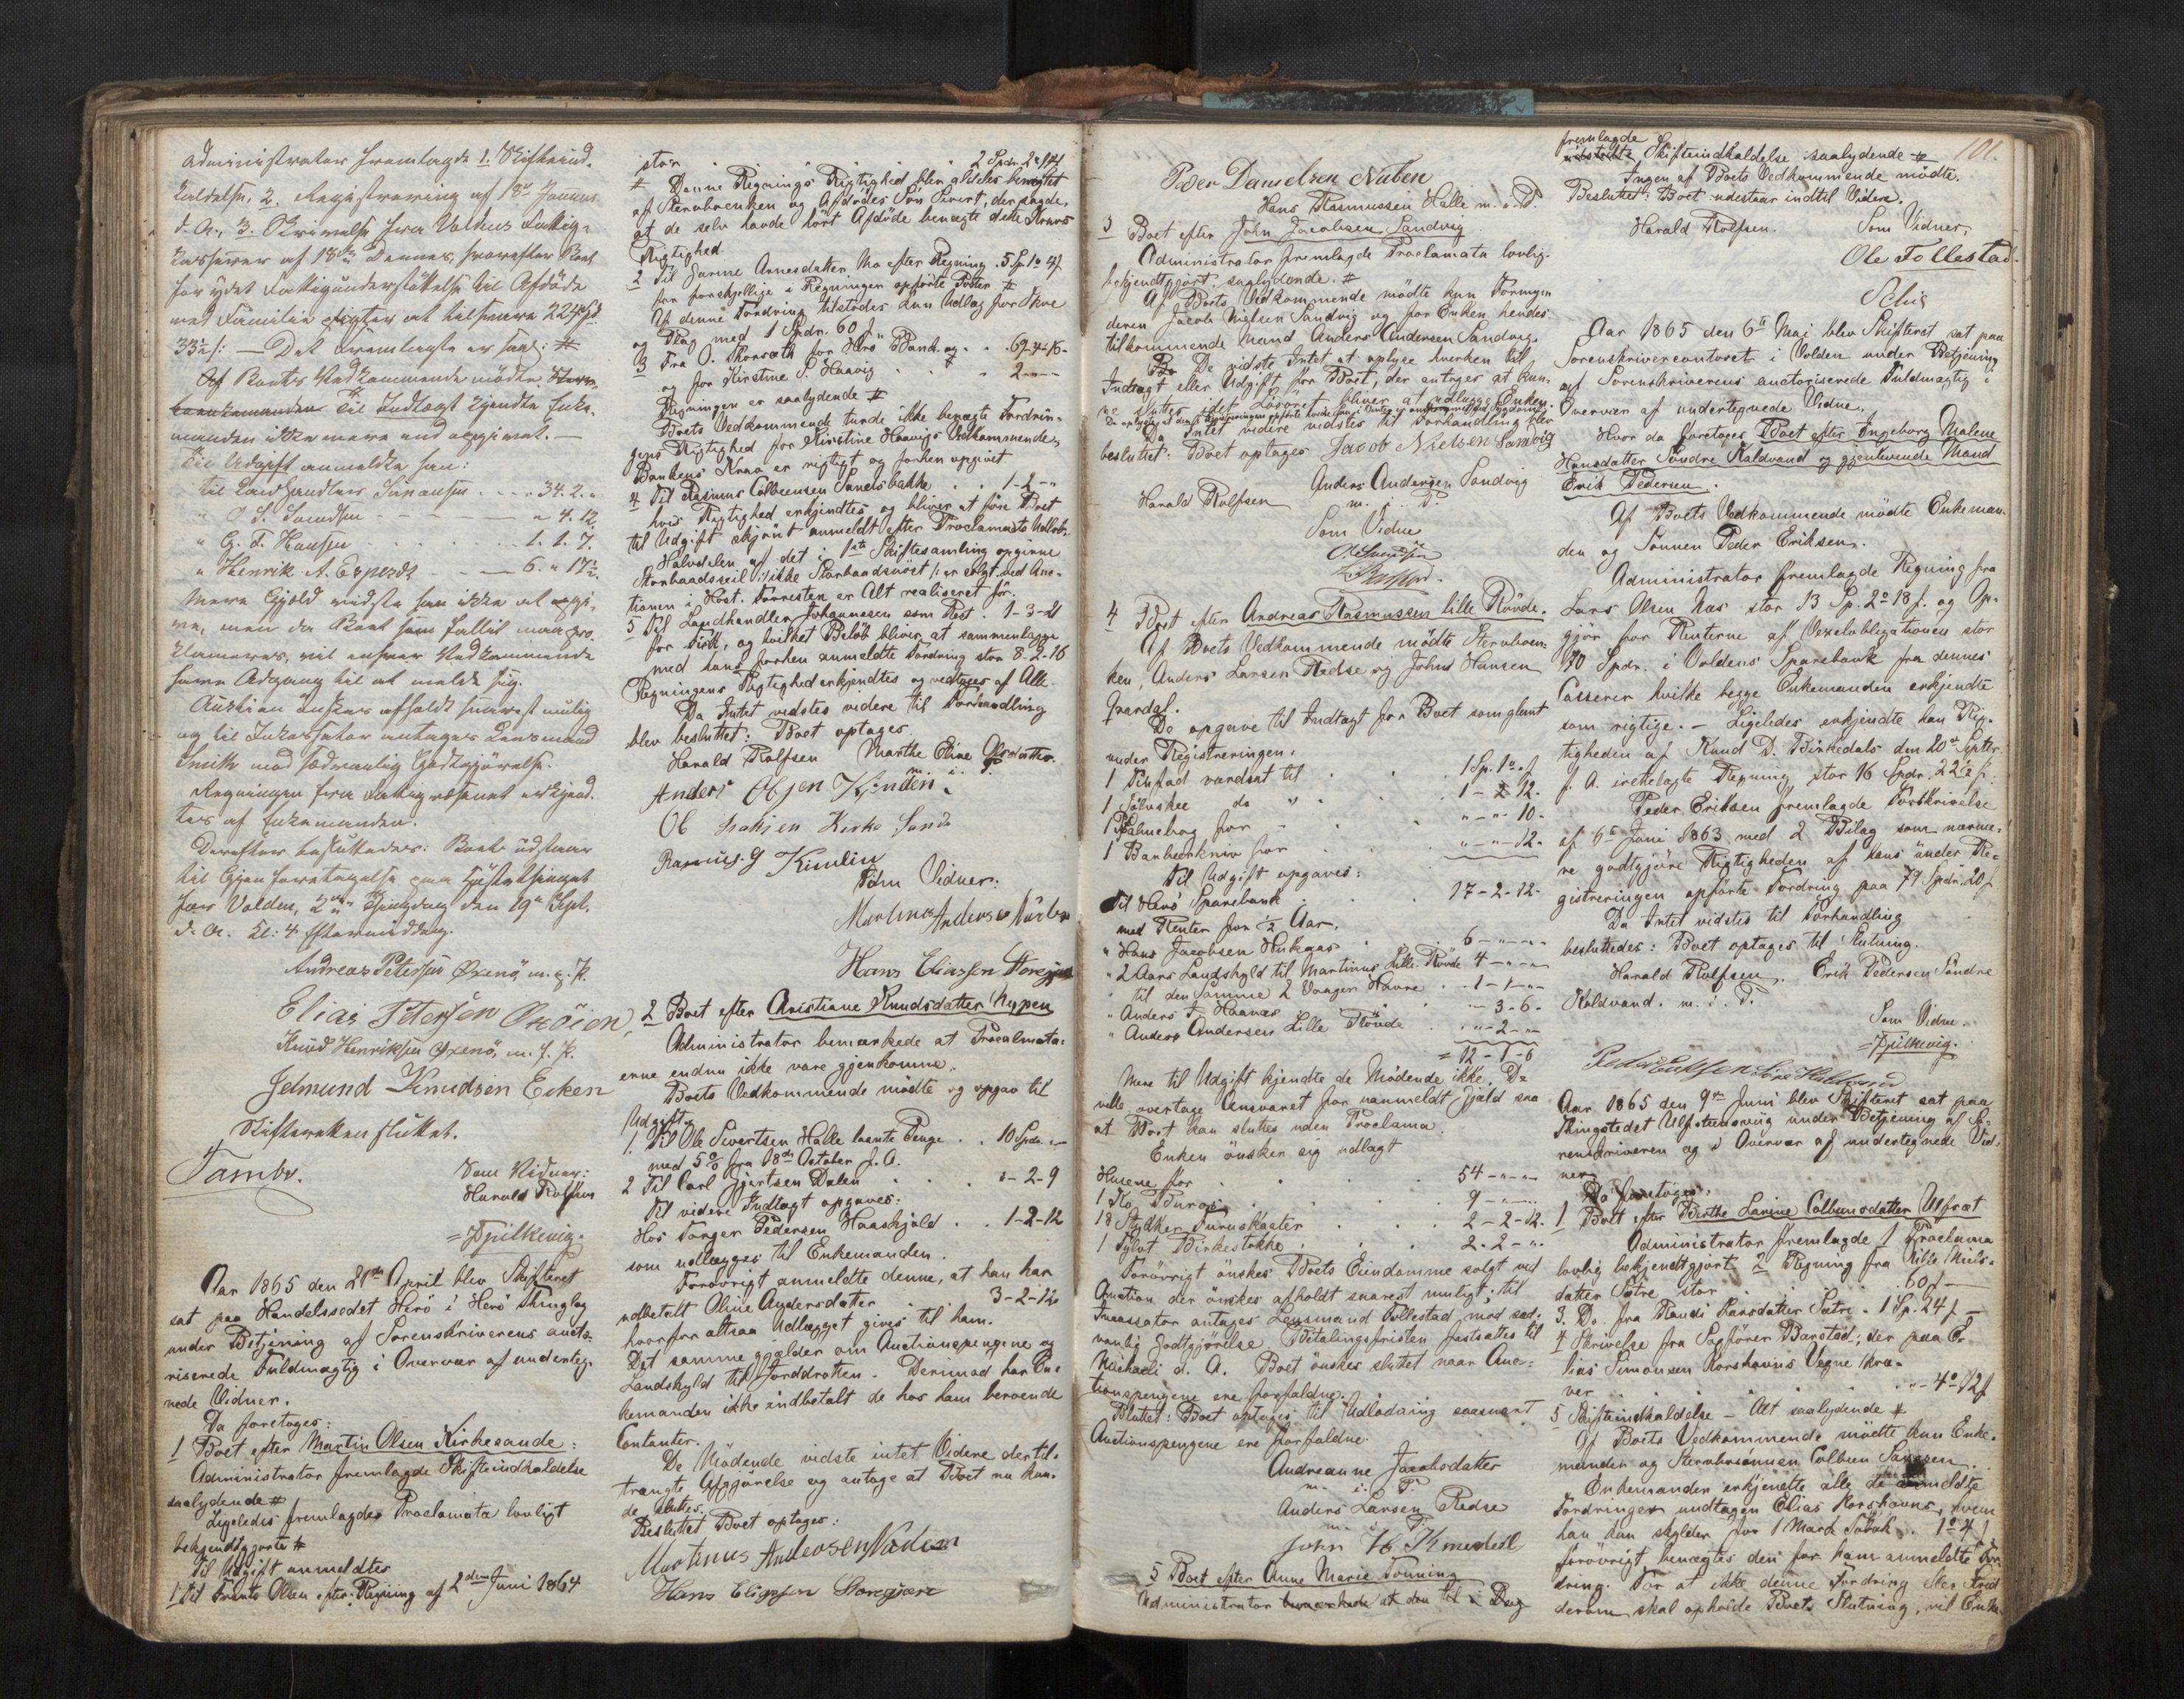 Administrator fremlagde 1. Skifteind-
kaldelse. 2. Registrering af 18de Januar
d. A., 3. Skrivelse fra Voldens Fattig-
kasserer af 18de Dennes, hvorefter Boet
for ydet Fattigunderstøttelse til Afdøde
med Familie pligter at tilsvare 224 Spd
33½ s: — Det Fremlagte er saal: #
Af Boets Vedkommende mødte
Til Indtægt kjendte Enke-
manden ikke mere end opgivet. —
Til Udgift anmeldte han:
til Landhandler Johansen . . . 34. 2. "
" O. S. Svendsen - - - " 4. 12
" G. T. Hansen . . . . 1. 1. 7.
" Henrik A. Espezet - - — 6. " 17½
Mere Gjæld vidste han ikke at opgi-
ve, men da Boet som fallit maa pro-
klameres, vil enhver Vedkommende
have Adgang til at melde sig.
Auktion ønskes afholdt snarest mulig
og til Inkassator antages Lensmand
Smith mod sædvanlig Godtgjørelse.
Regningen fra Fattigvæsenet erkjend-
tes af Enkemanden.
Derefter besluttedes: Boet udstaar
til Gjenforetagelse paa Høstethinget
for Volden, 2den Thingdag den 19de Sept.
d. A. Kl: 4 Eftermiddag.
Andreas Petersen Oxenø, m. i. P.
Elias Petersen Oxøien,
Knud Henriksen Oxenø, m. i. P.
Jetmund Knudsen Eiken
Skifteretten sluttet.
Tambr.
Som Vidner:
Harald Rolfsen
Spilkevig.
Aar 1865 den 21de April blev Skifteret
sat paa Handelsstedet Herø i Herø Thinglag
under Betjening af Sorenskriverens aucto-
riserede Fuldmægtig i Overvær af underteg-
nede Vidner.
Da foretoges:
1 Boet efter Martin Olsen Kirkesande:
Administrator fremlagde Skifteindkaldelse
saalydende #
Ligeledes fremlagdes Proclamata lovligt
bekjendtgjorte #
Til Udgift anmeldtes
1 Til Frants Olsen efter Regning af 2den Juni 1864
stor . . . 2 Spdr. 2 " 14 s
# Denne Regnings Rigtighed blev aldeles benægtet
af Stervboenken og Afdødes Søn Sivert, der sagde,
at de selv havde hørt Afdøde benægte dette Kravs
Rigtighed.
2 Til Gurine Annesdatter Mo efter Regning . 5 Sp. 1 o 4 s
for forskjellige i Regningen opførte Poster #
Af denne Fordring tilstodes kun Udlæg for Skoe
og Plag med 1 Spdr. 60 s.
3 Fra O. Thorsæth for Herø Bank og . . 67-4-16-
og for Kirstine S. Haavig . . . " 2-"-"
Regningen er saalydende #
Boets Vedkommende turde ikke benægte Fordrin-
gens Rigtighed for Kirstine Haavigs Vedkommende,
Bankens Krav er rigtigt og forhen opgivet
4 Til Rasmus Colbeensen Sanersbakke . . 1-2-"
hvis Rigtighed erkjendtes og bliver at føre Boet
til Udgift skjønt anmeldt efter Proclamaets Udløb.
Halvdelen af det i 1ste Skiftesamling opgivne
Storbaadsseil (ikke Storbaadsnøst) er solgt ved Auc-
tionen i Høst. Forresten er Alt realiseret før.
5 Til Landhandler Johannesen som Rest . 1-3-21
for Fisk, og hvilket Beløb bliver at sammenlægge
med hans forhen anmeldte Fordring stor 8-2-16
Regningens Rigtighed erkjendtes og vedtages af Alle.
Da Intet vidstes videre til Forhandling
blev besluttet: Boet optages
Harald Rolfsen Marthe Eline Olsdatter
m. i. P.
Anders Olsen Kjnden.
Ol Isaksen Kirke Sande
Rasmus. G Kimlin
Som Vidner:
Martinus Andersen
Hans Eliassen
2 Boet efter Christiane Knudsdatter Nupen
Administrator bemærkede at Procalmata-
erne endnu ikke vare gjenkomne.
Boets Vedkommende mødte og opgav til
Udgift.
1. Til Ole Sivertsen Halle laante Penge . . 10 Spdr. "-
med 5 % fra 18de October f. A.
2 Til Carl Gjertsen Dalen . . . . "-2-9
Til videre Indtægt opgaves:
Hos Torger Pedersen Haaskjold . . 1-2-12
som udlægges til Enkemanden.
Forøvrigt anmeldte denne, at han har
udbetalt Oline Andersdatter . . 3-2-12
hvorfor altsaa Udlægget gives til ham.
Det samme gjælder om Auctionspengene og
Landskyld til Jorddrotten. Derimod har En-
kemanden ikke indbetalt de hos ham beroende
Contanter.
De Mødende vidste intet Videre dertil.
trængte Afgjørelse og antoge at Boet nu kun-
de sluttes.
Besluttet Boet optages:
Martinus Andersen
Hans Eliassen
Peder Danielsen Nuben
Hans Rasmussen Halle m. i. P.
3 Boet efter John Jacobsen Sandvig
Administrator fremlagde Proclamata lovlig-
bekjendtgjort saalydende. #
Af Boets Vedkommende mødte kun Formyn-
deren Jacob Nielsen Sandvig og for Enken hendes
tilkommende Mand Anders Andersen Sandvig.
De vidste Intet at oplyse hverken til
Indtægt eller Udgift for Boet, der antages at kun-
ne sluttes, idet Løsøret bliver at udlægge Enken.
Da Intet videre vidstes til Forhandling blev
besluttet: Boet optages Jacob Nielsen Sandvig
Anders Andersen Sandvig
Harald Rolfsen m. i. P.
Som Vidne
4 Boet efter Andreas Rasmussen lille Røvde.
Af Boets Vedkommende mødte Stervboen-
ken, Anders Larsen Redse og Johns Hansen
Qvardal.
De opgave til Indtægt for Boet som glemt
under Registreringen.
1 Sinfad vurdsat til . . 1 Sp. 1 o "
1 Sølvskee do " . . 1 - 2 12.
1 Psalmebog for - . . " - " - 10.
1 Barbeerkniv for . . " - " - 12.
Til Udgift opgaves:
Til Herø Sparebank . . 17-2-12-
med Renter for ½ Aar.
" Hans Jacobsen . . 6-"-"-"
" 2 Aars Landskyld til Martinus Lille Røvde 4-"-"
" til den Samme 2 Vaager Havre . 1-1-"-
" Anders T. Haanæs . . " - 3-6-
" Anders Andersen Lille Røvde . " - 2-"
= 12-1-6
Mere til Udgift kjendte de Mødende ikke. De
ville overtage Ansvaret for uanmeldt Gjæld saa
at Boet kan sluttes uden Proclama.
Enken ønsker sig udlagt
Husene for . . . 54-"-"
1 Ko, Buraas . . . 9-"-"
18 Stykker Furuskaater . . 2-2-12.
1 Tylvt Birkestokke . . 2-2-"
Forøvrigt ønskes Boets Eiendomme solgt ved
Auction der ønskes afholdt snarest muligt; til
Incassator antages Lensmand Follestad mod sæd-
vanlig Godtgjørelse. Betalingsfristen fastsættes til
Michaeli d. A. Boet ønskes sluttet naar Auc-
tionspengene ere forfaldne.
Sluttet: Boet optages til Udlodning saasnart
Auctionspengene ere forfaldne.
Andreanne Jacobsdatter
m. i. P.
Anders Larsen Redse
m. i. P.
John H.
5 Boet efter Anne Marie Tonning
Administrator bemærkede at den til i Dag
101.
fremlagde
udstedte Skifteindkaldelse saalydende #
Ingen af Boets Vedkommende mødte.
Besluttet: Boet udestaar indtil Videre.
Harald Rolfsen. Som Vidner,
Ole Follestad.
Aar 1865 den 6te Mai blev Skifteret sat paa
Sorenskrivercontoret i Volden under Betjening
af Sorenskriverens auctoriserede Fuldmægtig i
Overvær af undertegnede Vidne.
Hvor da foretoges Boet efter Ingeborg Malene
Hansdatter Søndre Kaldvand og gjenlevende Mand
Erik Pedersen.
Af Boets Vedkommende mødte Enkeman-
den og Sønnen Peder Eriksen.
Administrator fremlagde Regning fra
Lars Olsen Næs stor 13 Sp. 2 o 18 s. og Op-
gjør for Renterne af Vexelobligationen stor
70 Spdr. i Voldens Sparebank fra dennes
Casserer hvilke begge Enkemanden erkjendte
som rigtige. — Ligeledes erkjendte han Rig-
tigheden af Knud D. Birkedals den 20de Septbr.
f. A. irettelagte Regning stor 16 Spdr. 22½ s.
Peder Eriksen fremlagde Forskrivelse
af 6te Juni 1863 med 2 Bilag som nærme-
re godtgjøre Rigtigheden af hans under Re-
gistreringen opførte Fordring paa 77 Spdr. 20 s
Da Intet vidstes til Forhandling
besluttedes: Boet optages til Slutning.
Harald Rolfsen. Erik Pedersen Søndre
Kaldvand. m. i. P.
Som Vidne.
Spilkevig.
Peder Eriksen
Aar 1865 den 9de Juni blev Skifteret sat paa
Thingstedet Ulfsteensvig under Betjening af So-
renskriveren og i Overvær af undertegnede Vid-
ner
Da foretoges:
1 Boet efter Birthe Lavine Colbeensdatter Ulfsæt
Administrator fremlagde 1 Proclama
lovlig bekjendtgjort 2 Regning fra Nille Niels-
datter Sætre stor . . . 60 s —
3. Do. fra Randi Hansdatter Sætre . 1 Sp. 24 s —
4 Skrivelse fra Sagfører Barstad; der paa E-
lias Simonsen Korshavns Vegne kræ-
ver . . . . "- 4 o 12 s
5 Skifteindkaldelse — Alt saalydende #
Af Boets Vedkommende mødte kun Enke-
manden og Stervbosønnen Colbeen Larssen.
Enkemanden erkjendte alle de anmeldte
Fordringer undtagen Elias Korshavns, hvem
han kun skylder for 1 Mark Tobak . 1 o 4 s
forøvrigt benægtes den for ham anmeldte For-
dring. For at ikke denne Fordring eller Strid
derom skal opholde Boets Slutning, vil Enke-